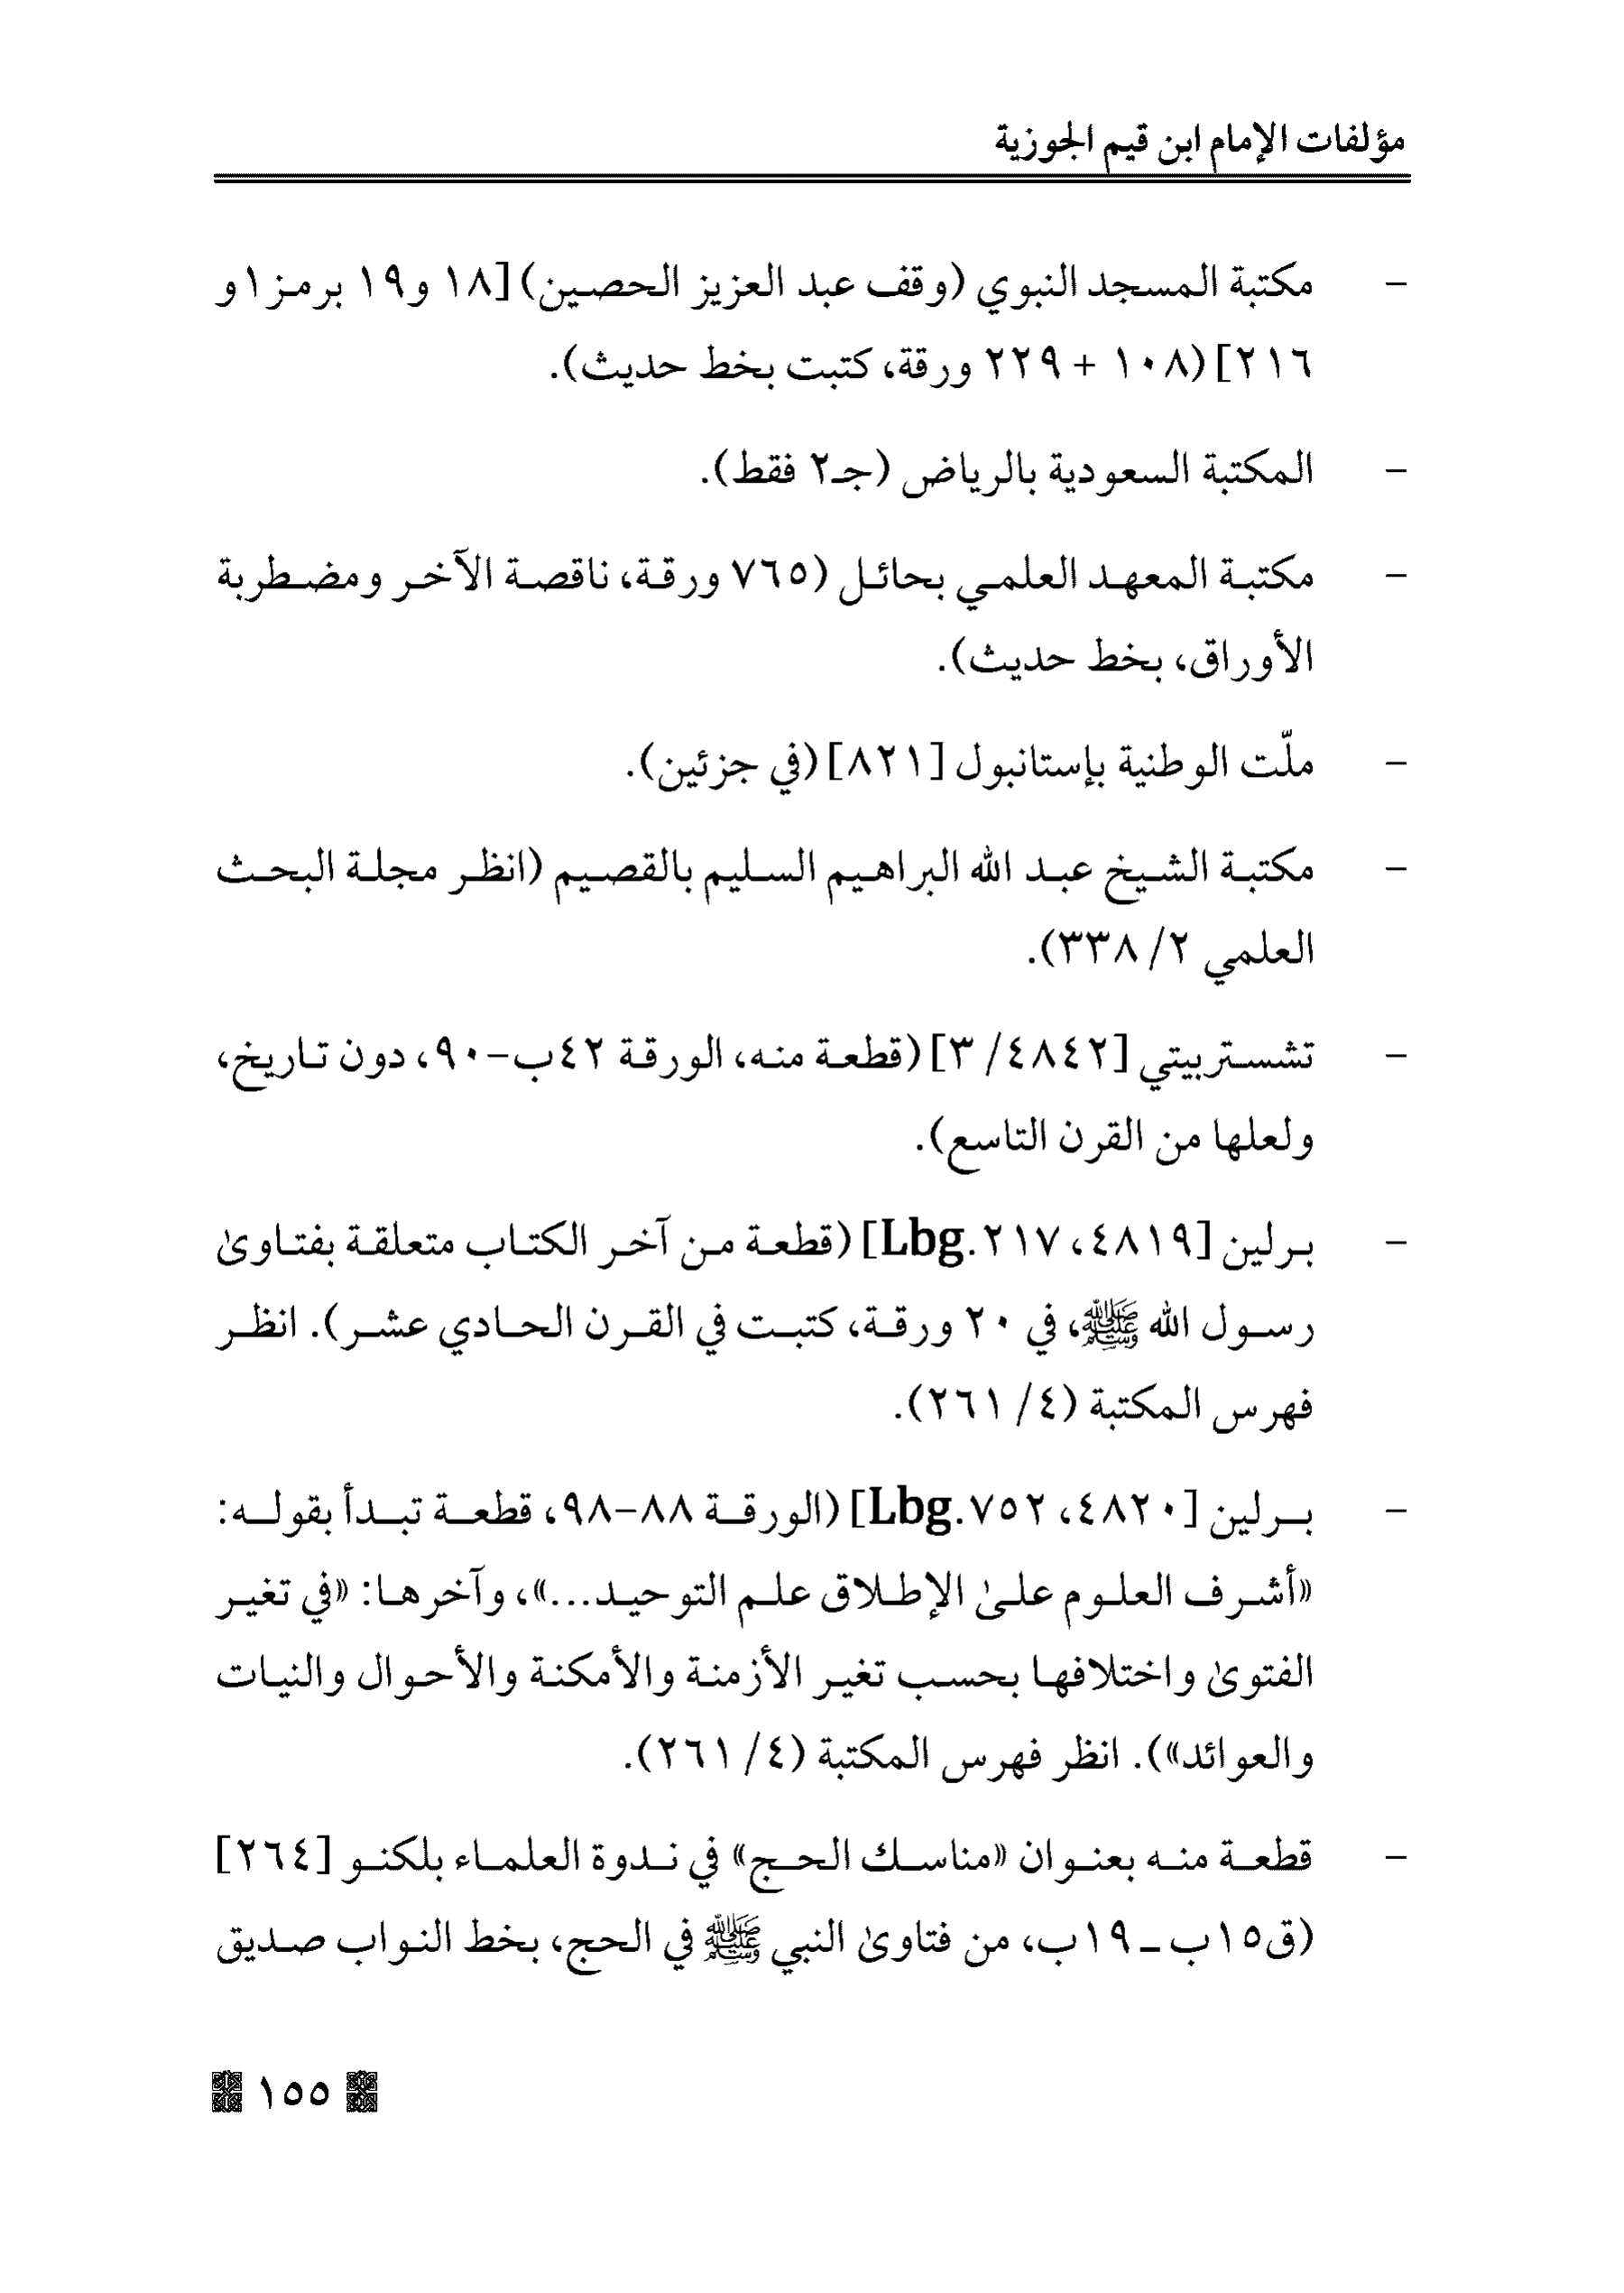 مؤلفات الإمام ابن قيم الجوزية
- مكتبة المسجد النبوي (وقف عبد العزيز الحصين) [١٨ و١٩ برمز١ و
٢١٦] (١٠٨ + ٢٢٩ ورقة، كتبت بخط حديث).
- المكتبة السعودية بالرياض (جـ٢ فقط).
- مكتبة المعهد العلمي بحائل (٧٦٥ ورقة، ناقصة الآخر ومضطربة
الأوراق، بخط حديث).
- ملّت الوطنية بإستانبول [٨٢١] (في جزئين).
- مكتبة الشيخ عبد الله البراهيم السليم بالقصيم (انظر مجلة البحث
العلمي ٢/ ٣٣٨).
- تشستربيتي [٤٨٤٢/ ٣] (قطعة منه، الورقة ٤٢ب-٩٠، دون تاريخ،
ولعلها من القرن التاسع).
- برلين [٤٨١٩، ٢١٧ .Lbg] (قطعة من آخر الكتاب متعلقة بفتاوىٰ
رسول الله ﷺ، في ٢٠ ورقة، كتبت في القرن الحادي عشر). انظر
فهرس المكتبة (٤/ ٢٦١).
- برلين [٤٨٢٠، ٧٥٢ .Lbg] (الورقة ٨٨-٩٨، قطعة تبدأ بقوله:
«أشرف العلوم علىٰ الإطلاق علم التوحيد...»، وآخرها: «في تغير
الفتوىٰ واختلافها بحسب تغير الأزمنة والأمكنة والأحوال والنيات
والعوائد»). انظر فهرس المكتبة (٤/ ٢٦١).
- قطعة منه بعنوان «مناسك الحج» في ندوة العلماء بلكنو [٢٦٤]
(ق١٥ب ـ ١٩ب، من فتاوىٰ النبي ﷺ في الحج، بخط النواب صديق
١٥٥